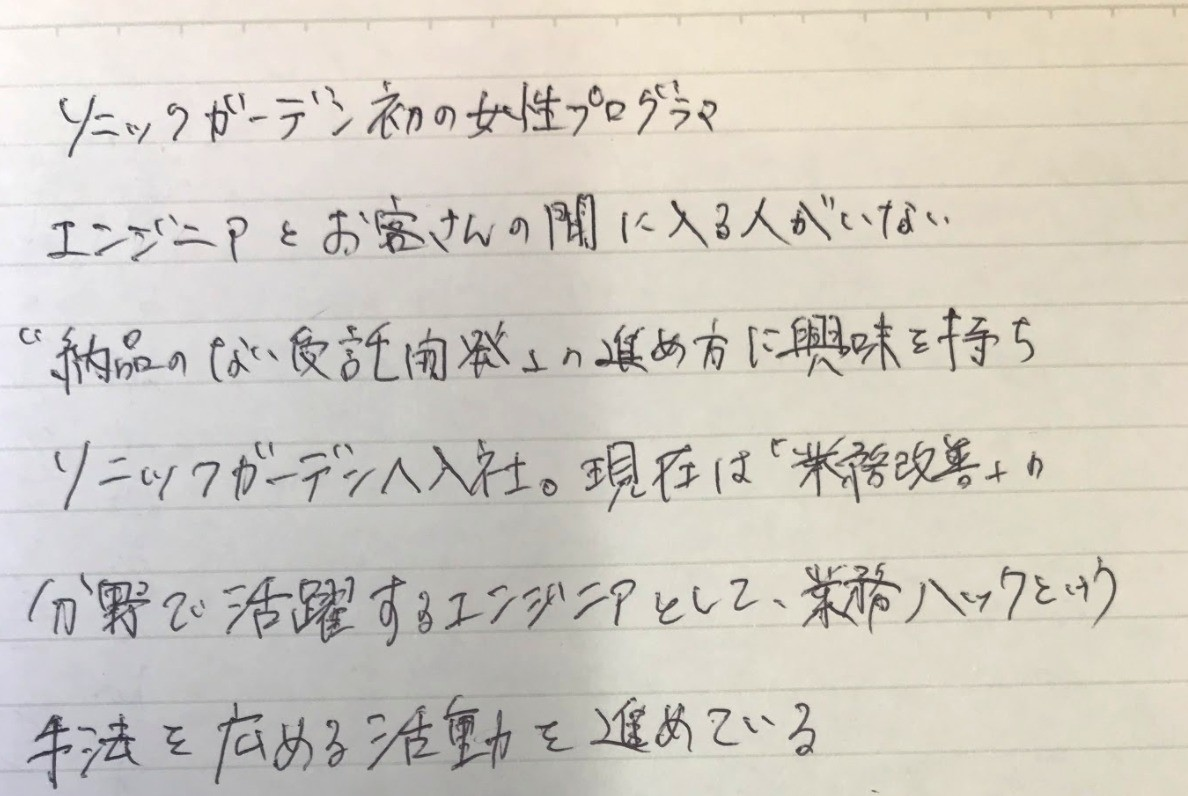 ソニックガーデン初の女性プログラマ
エンジニアとお客さんの間に入る人がいない
“納品のない受託開発」の進め方に興味を持ち
ソニックガーデンへ入社。現在は「業務改善」の
分野で活躍するエンジニアとして、業務ハックという
手法を広める活動を進めている